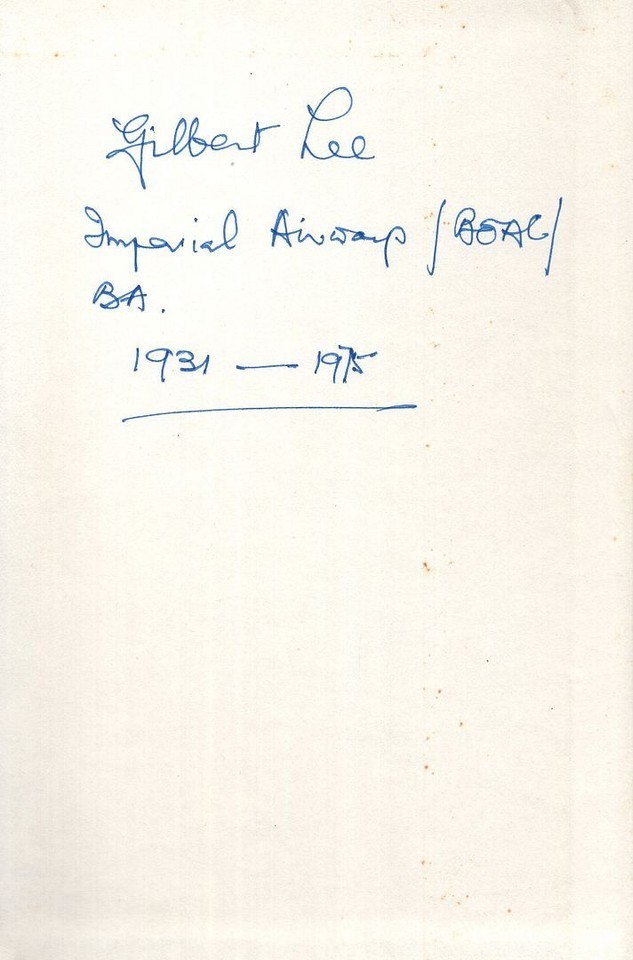 Gilbert Lee
Imperial Airways / BOAC /
BA.
1931 — 1975